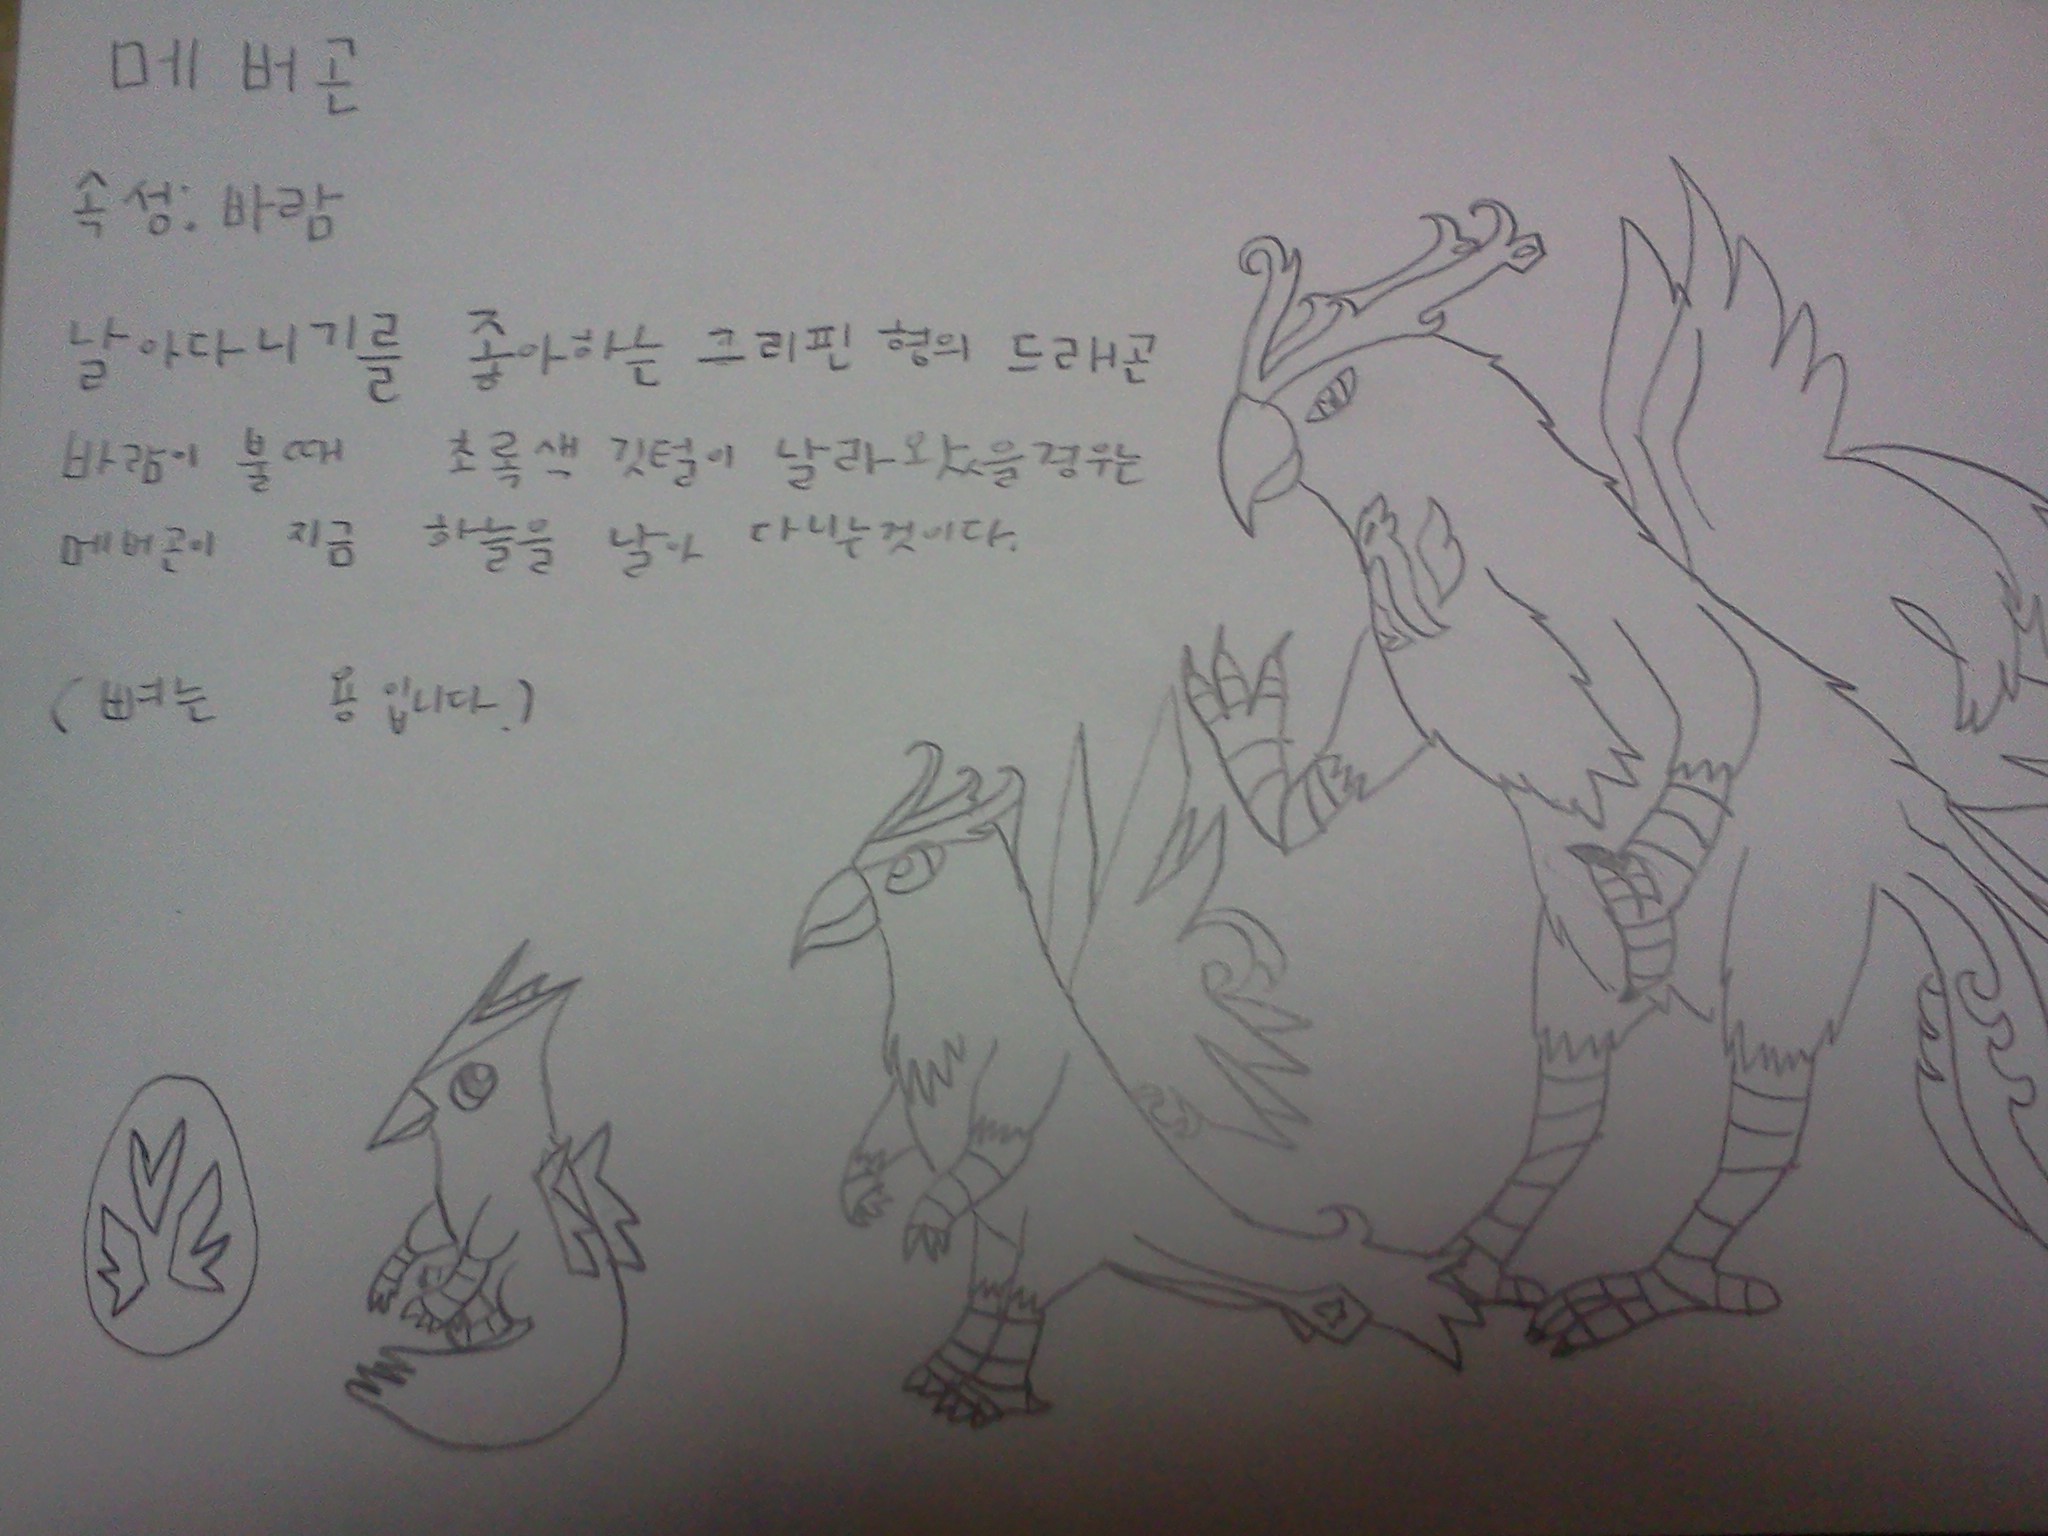 메버곤
속성: 바람
날아다니기를 좋아하는 크리핀 형의 드래곤
바람이 불때 초록색 깃털이 날라왔을경우는
메버곤이 지금 하늘을 날아 다니는것이다.
(뼈는 용입니다.)